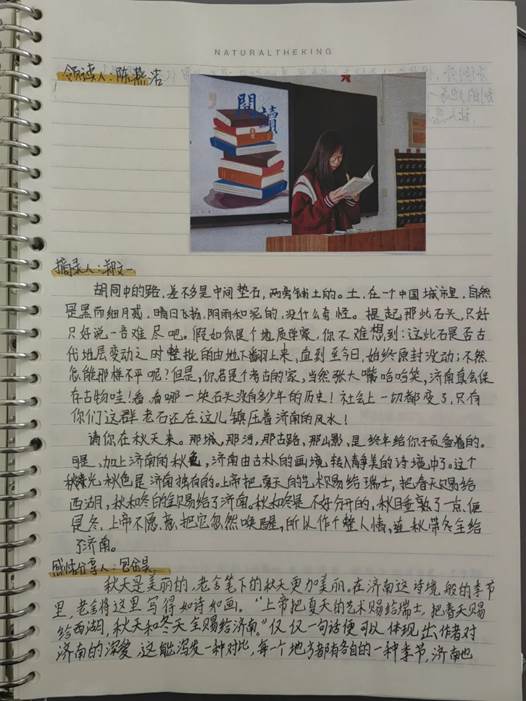 NATURALTHEKING
领读人：陈燕洁
閱讀
摘录人：郑文一
胡同中的路，差不多是中间垫石，两旁铺土的。土，在一个中国城市里，自然
是黑而细月，晴日飞扬，阴雨和泥的，没什么奇怪。提起那些石头，只好
只好说一言难尽吧。假如你是个地质学家，你不难想到：这些石是否古
代地层变动之时整批的由地下翻上来，直到至今日，始终原封没动；不然，
怎能那样不平呢？但是，你若是个考古的家，当然张大嘴哈哈笑，济南真会保
存古物哇！看，看哪一块石头没有多少年的历史！社会上一切都变了，只有
你们这群老石还在这儿镇压着济南的风水！
请你在秋天来。那城，那河，那古路，那山影，是终年给你预备着的。
可是，加上济南的秋色，济南由古朴的画境转入静美的诗境中了。这个
秋光秋色是济南独有的。上帝把夏天的艺术赐给瑞士，把春天的赐给
西湖，秋和冬的全赐给了济南。秋和冬是不好分开的，秋睡熟了一点便
是冬，上帝不愿意把它忽然唤醒，所以作个整人情，连秋带冬全给
了济南。
感悟分享人：
秋天是美丽的，老舍笔下的秋天更加美丽。在济南这诗境般的季节
里，老舍将这里写得如诗如画。“上帝把夏天的艺术赐给瑞士，把春天赐
给西湖，秋天和冬天全赐给济南。”仅仅一句话便可以体现出作者对
济南的深爱，这能深发一种对比，每个地方都有各自的一种季节，济南也